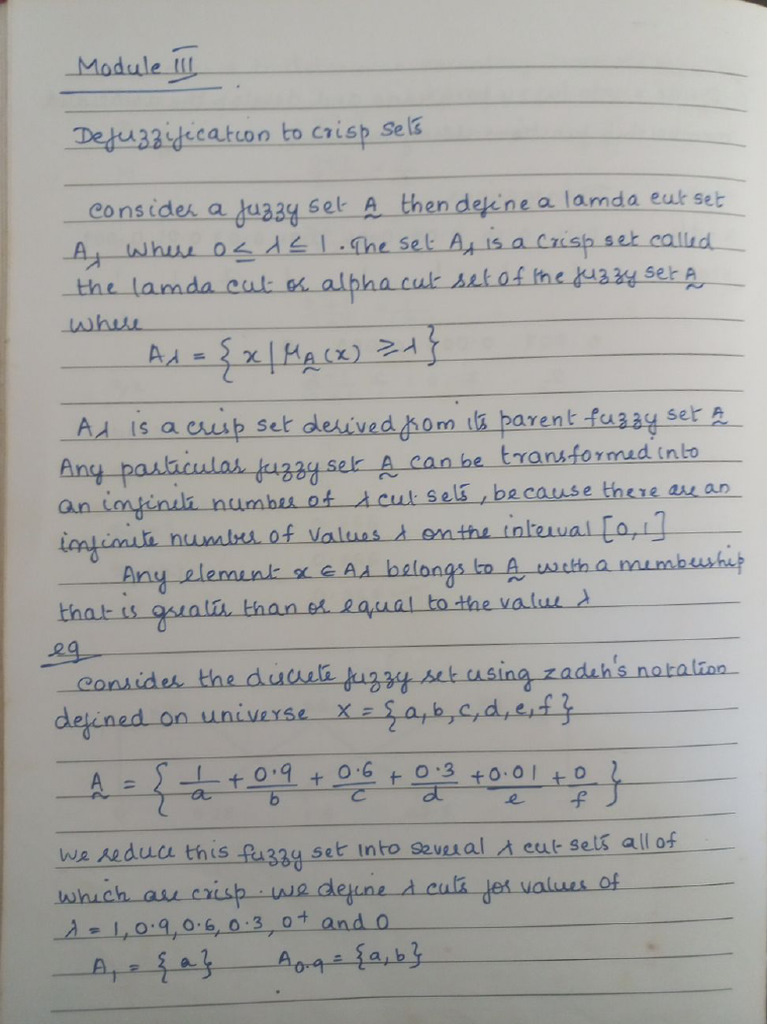 Module III
Defuzzification to crisp sets
consider a fuzzy set A̰ then define a lamda cut set
Aλ where 0 ≤ λ ≤ 1. The set Aλ is a crisp set called
the lamda cut or alpha cut set of the fuzzy set A̰
where
Aλ = { x | μA̰(x) ≥ λ }
Aλ is a crisp set derived from its parent fuzzy set A̰
Any particular fuzzy set A̰ can be transformed into
an infinite number of λ cut sets, because there are an
infinite number of values λ on the interval [0,1]
Any element x ∈ Aλ belongs to A̰ with a membership
that is greater than or equal to the value λ
eg
consider the discrete fuzzy set using zadeh's notation
defined on universe X = {a, b, c, d, e, f}
A̰ = { 1/a + 0.9/b + 0.6/c + 0.3/d + 0.01/e + 0/f }
we reduce this fuzzy set into several λ cut sets all of
which are crisp. we define λ cuts for values of
λ = 1, 0.9, 0.6, 0.3, 0⁺ and 0
A₁ = { a } A₀.₉ = {a, b}